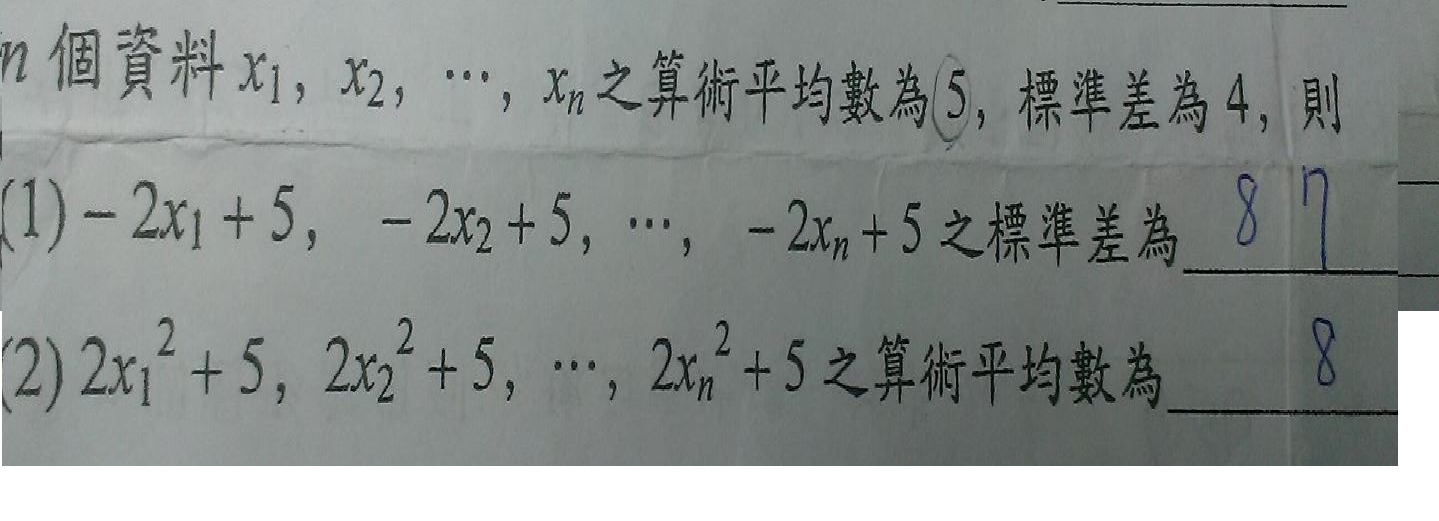 n 個資料 x₁, x₂, …, xₙ 之算術平均數為 5, 標準差為 4, 則
(1) − 2x₁ + 5, − 2x₂ + 5, …, − 2xₙ + 5 之標準差為 8 7
(2) 2x₁² + 5, 2x₂² + 5, …, 2xₙ² + 5 之算術平均數為 8